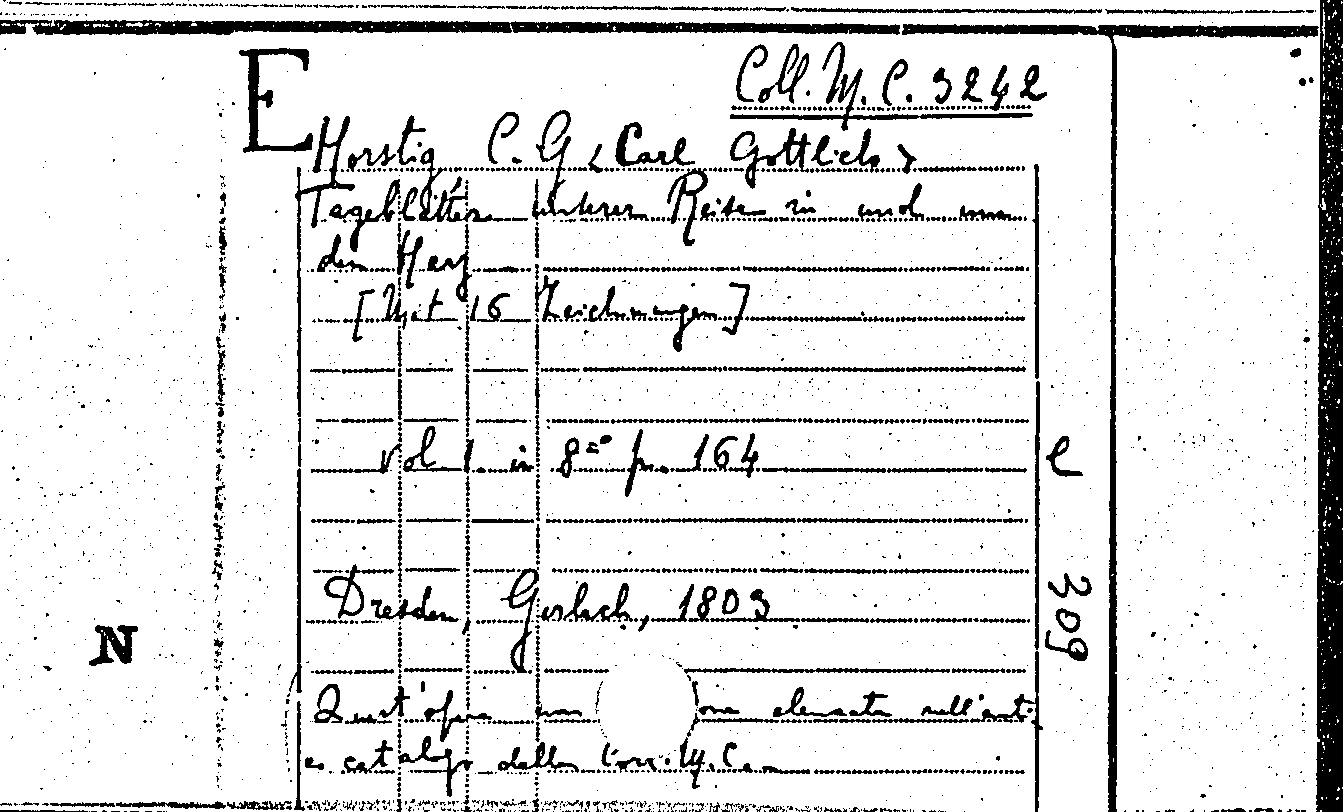 E
Coll. M. C. 3242
Horstig C. G. <Carl Gottlieb>
Tageblätter unserer Reise in und um
den Harz
[Mit 16 Zeichnungen]
vol. 1. in 8° p. 164
e 309
Dresden, Gerlach, 1803
N
Quest'opera non elencata nell'anti
co catalogo della Coll. M. C.